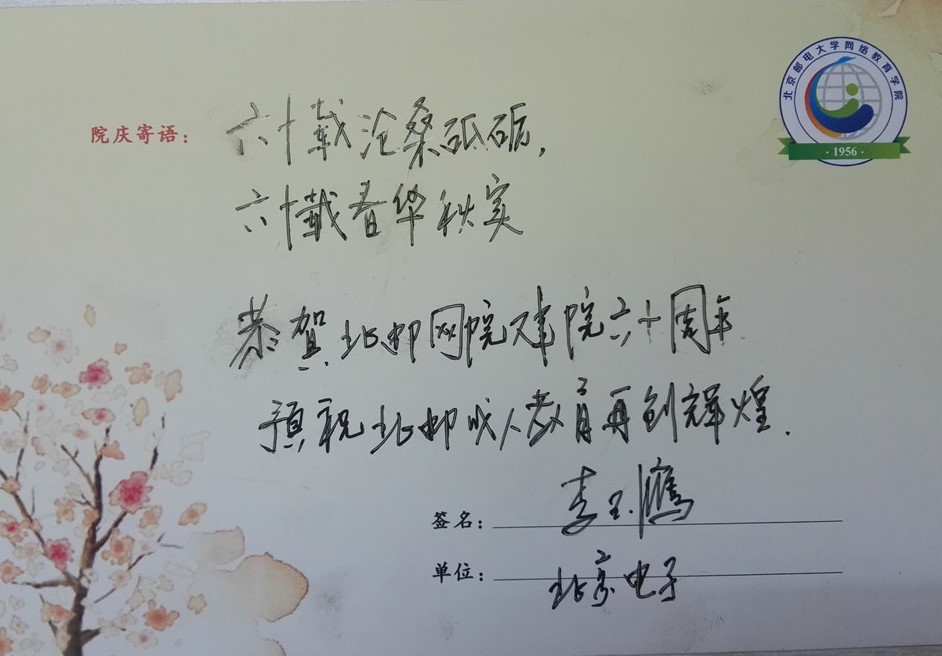 北京邮电大学网络教育学院
·1956·
院庆寄语：六十载沧桑砥砺，
六十载春华秋实
恭贺北邮网院建院六十周年
预祝北邮成人教育再创辉煌.
签名：李玉鹰
单位：北京电子